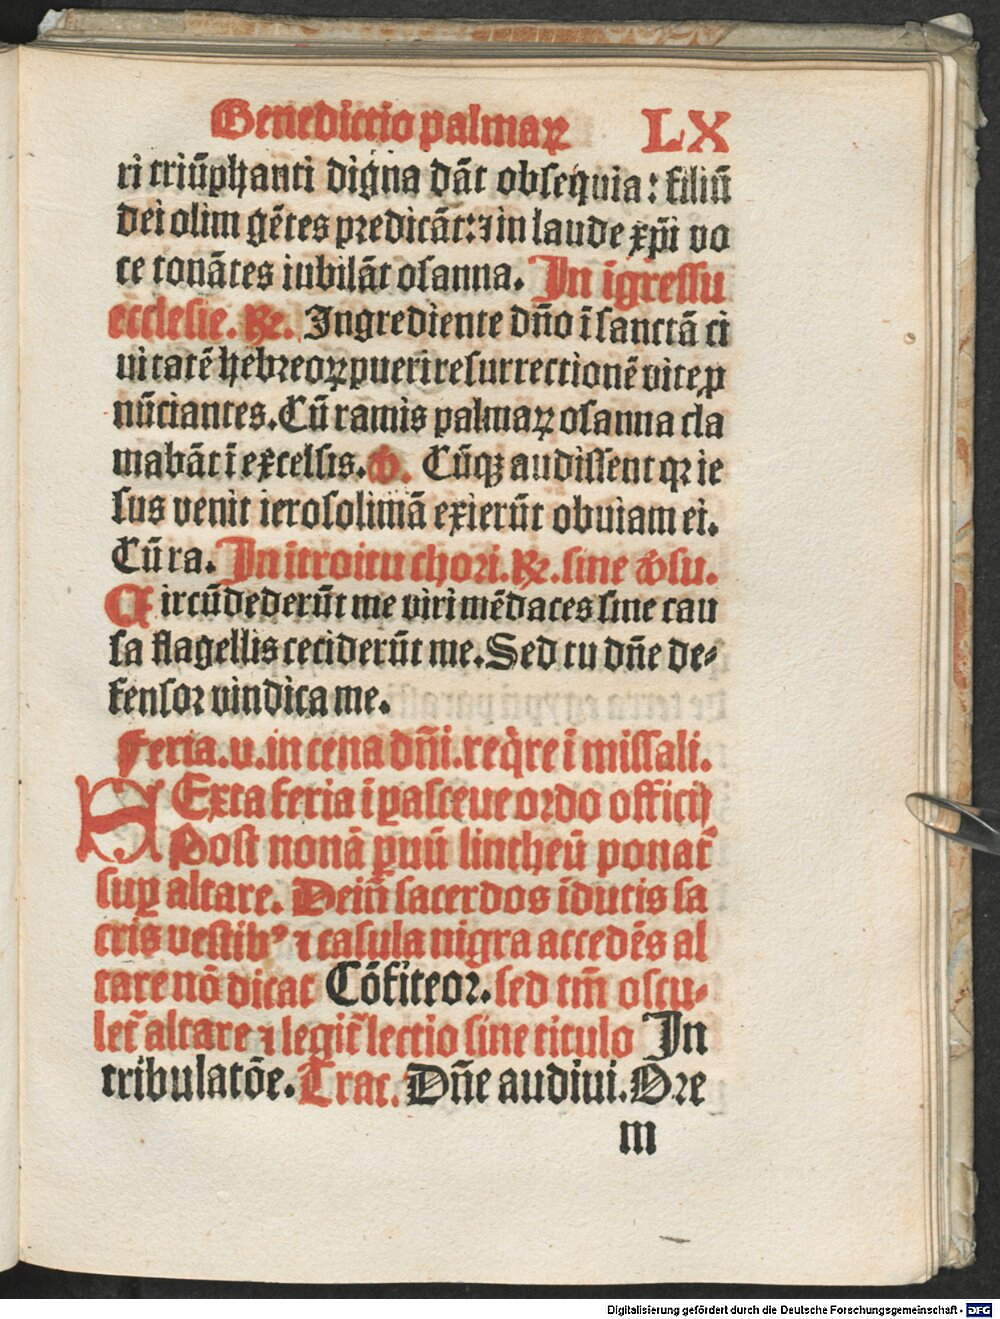 Benedictio palmaꝝ LX
ri triūphanti digna dāt obsequia: filiū
dei olim gētes predicāt: ⁊ in laude xp̄i vo
ce tonātes iubilāt osanna. In īgressu
ecclesie. ℞. Ingrediente dn̄o ī sanctā ci
uitatē hebreoꝝ pueri resurrectionē vite ꝓ
nūciantes. Cū ramis palmaꝝ osanna cla
mabāt ī excelsis. ℣. Cūqꝫ audissent qꝛ ie
sus venit ierosolimā exierūt obuiam ei.
Cū ra. In ītroitu chori. ℞. sine ℣su.
Circūdederūt me viri mēdaces sine cau
sa flagellis ceciderūt me. Sed tu dn̄e de⸗
fensor vindica me.
Feria. v. in cena dn̄i. reqͥre ī missali.
SExta feria ī pasceue ordo officij
Post nonā ꝑuū lintheū ponat᷑
suꝑ altare. Dein̄ sacerdos īdutis sa
cris vestibꝰ ⁊ casula nigra accedēs al
tare nō dicat Cōfiteor. sed tm̄ oscu⸗
let᷑ altare ⁊ legit᷑ lectio sine titulo In
tribulatōe. Trac. Dn̄e audiui. Ore
m